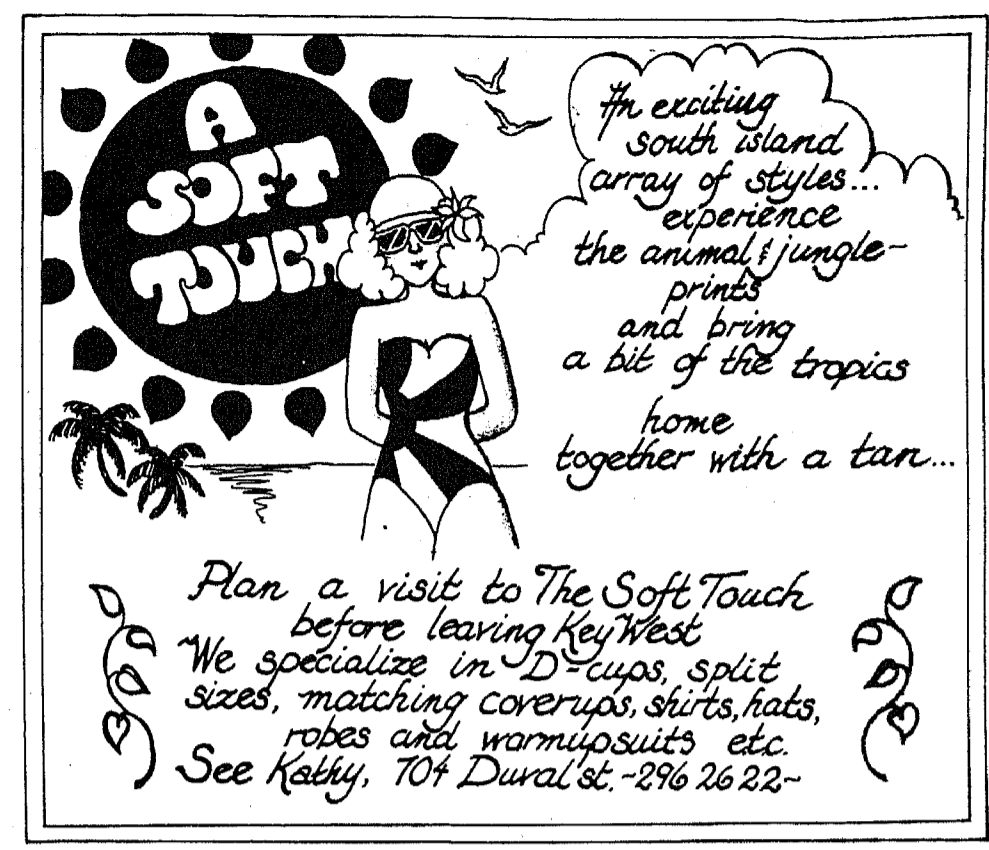 A
SOFT
TOUCH
An exciting
south island
array of styles...
experience
the animal & jungle-
prints
and bring
a bit of the tropics
home
together with a tan...
Plan a visit to The Soft Touch
before leaving Key West
We specialize in D-cups, split
sizes, matching coverups, shirts, hats,
robes and warmupsuits etc.
See Kathy, 704 Duval st. ~296 26 22~